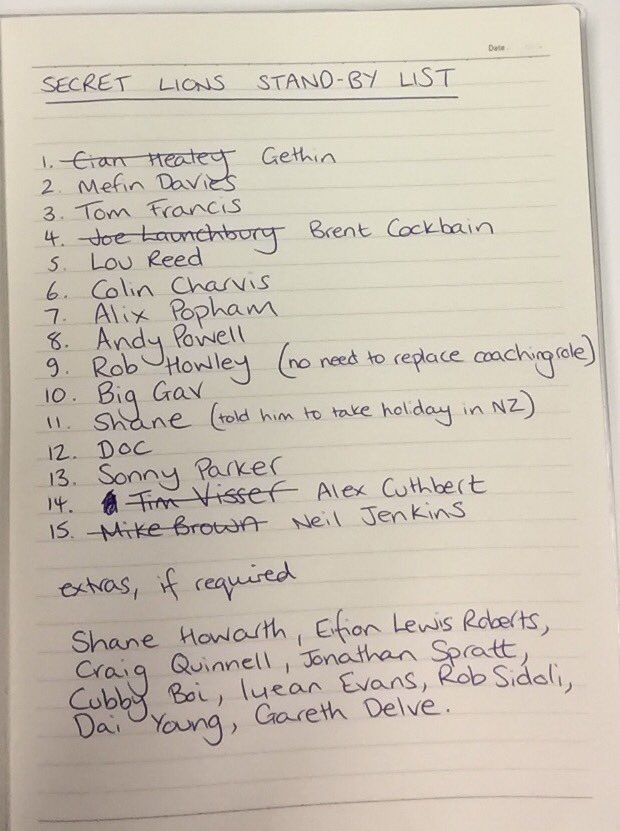 Date
SECRET LIONS STAND-BY LIST
1. Cian Healey Gethin
2. Mefin Davies
3. Tom Francis
4. Joe Launchbury Brent Cockbain
5. Lou Reed
6. Colin Charvis
7. Alix Popham
8. Andy Powell
9. Rob Howley (no need to replace coaching role)
10. Big Gav
11. Shane (told him to take holiday in NZ)
12. DOC
13. Sonny Parker
14. Tim Visser Alex Cuthbert
15. Mike Brown Neil Jenkins
extras, if required
Shane Howarth, Eifion Lewis Roberts,
Craig Quinnell, Jonathan Spratt,
Cubby Boi, Iuean Evans, Rob Sidoli,
Dai Young, Gareth Delve.